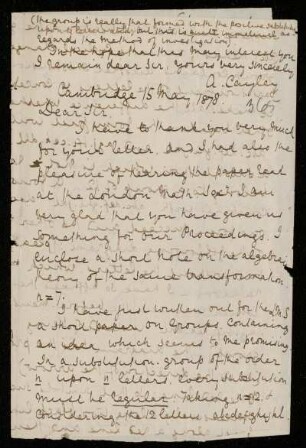 (the group is really that formed with the positive
upon
regards the method of investigation)
In the hope that this may interest you
I remain dear Sir, yours very sincerely
A. Cayley
Cambridge 15 May 1878
Dear Sir
I have to thank you very much
for your letter. and I had also the
pleasure of hearing the paper read
at the London Math. Socy. I am
very glad that you have given us
something for our Proceedings. I
enclose a short note on the algebraic
theory of the transformation
n=7.
I have just written out for the
a short paper on Groups, containing
an idea which seems to me promising
In a substitution-group of the order
n upon n letters, every substitution
must be regular. Taking n=12 &
considering the 12 letters abcdefghijkl